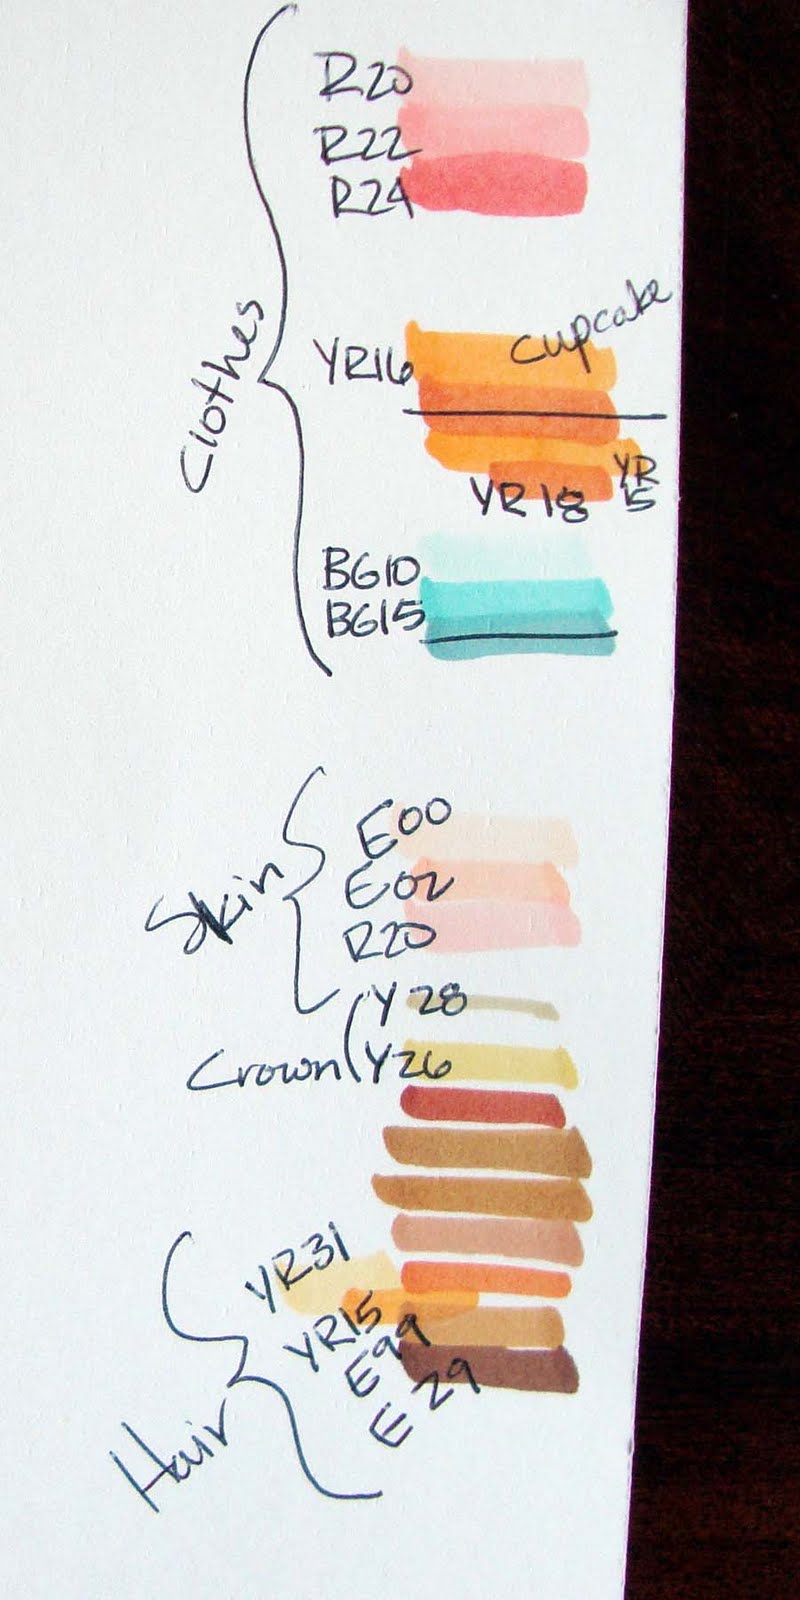 R20
R22
R24
Clothes
cupcake
YR16
YR18
YR
15
BG10
BG15
Skin
E00
E02
R20
Crown
Y28
Y26
Hair
YR31
YR15
E99
E29